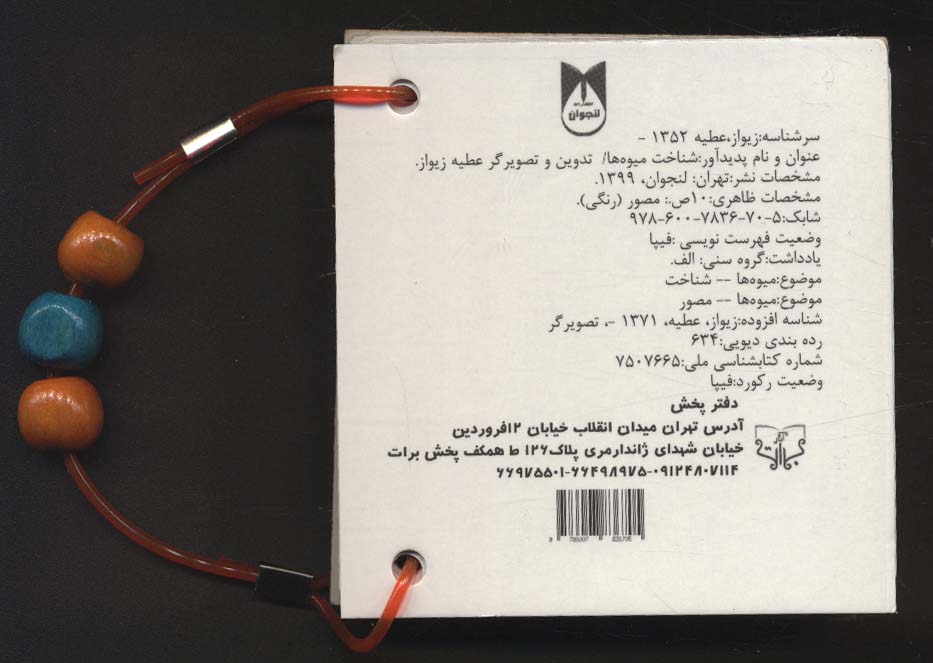 لنجوان
سرشناسه:زیواز،عطیه ۱۳۵۲ -
عنوان و نام پدیدآور:شناخت میوه‌ها/ تدوین و تصویرگر عطیه زیواز.
مشخصات نشر:تهران: لنجوان، ۱۳۹۹.
مشخصات ظاهری:۱۰ص.: مصور (رنگی).
شابک:۵-۷۰-۷۸۳۶-۶۰۰-۹۷۸
وضعیت فهرست نویسی :فیپا
یادداشت:گروه سنی: الف.
موضوع:میوه‌ها -- شناخت
موضوع:میوه‌ها -- مصور
شناسه افزوده:زیواز، عطیه، ۱۳۷۱ -، تصویرگر
رده بندی دیویی:۶۳۴
شماره کتابشناسی ملی:۷۵۰۷۶۶۵
وضعیت رکورد:فیپا
دفتر پخش
آدرس تهران میدان انقلاب خیابان ۱۲فروردین
خیابان شهدای ژاندارمری پلاک۱۲۶ ط همکف پخش برات
۰۹۱۲۴۸۰۷۱۱۴-۶۶۴۹۸۹۷۵-۶۶۹۷۵۵۰۱